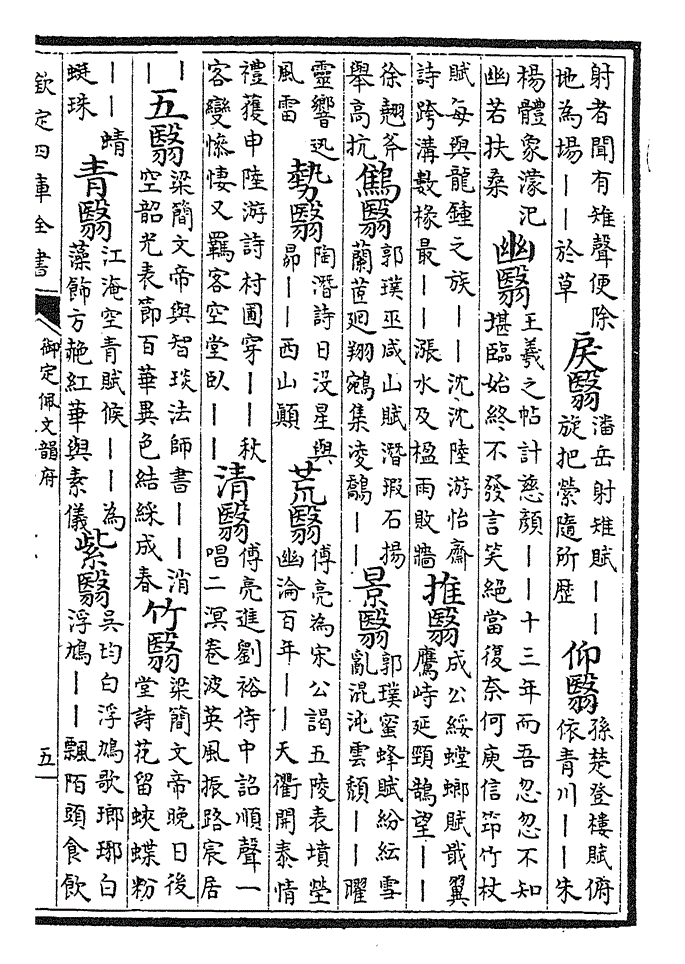 射者聞有雉聲便除
地為場——於草
戾翳
潘岳射雉賦——
旋把縈隨所歷
仰翳
孫楚登樓賦俯
依青川——朱
楊體象濛汜
幽若扶桑
幽翳
王羲之帖計慈顏——十三年而吾忽忽不知
堪臨始終不發言笑絕當復奈何庾信笻竹杖
賦每與龍鍾之族——沈沈陸游怡齋
詩跨溝數椽最——漲水及楹雨敗牆
推翳
成公綏螳螂賦戢翼
鷹峙延頸鵠望——
徐翹斧
舉高抗
鶴翳
郭璞巫咸山賦潛瑕石揚
蘭茝迴翔鵷集凌鷸——
景翳
郭璞蜜蜂賦紛紜雪
亂混沌雲頹——曜
靈響迅
風雷
勢翳
陶潛詩日没星與
昴——西山顛
荒翳
傅亮為宋公謁五陵表墳塋
幽淪百年——天衢開泰情
禮獲申陸游詩村圃穿——秋
客變慘悽又羈客空堂臥——
清翳
傅亮進劉裕侍中詔順聲一
唱二溟卷波英風振路宸居
—
五翳
梁簡文帝與智琰法師書——消
空韶光表節百華異色結綵成春
竹翳
梁簡文帝晚日後
堂詩花留蛺蝶粉
——蜻
蜓珠
青翳
江淹空青賦候——為
藻飾方艴紅華與素儀
紫翳
吳均白浮鳩歌瑯琊白
浮鳩——飄陌頭食飲
欽定四庫全書
御定佩文韻府
五